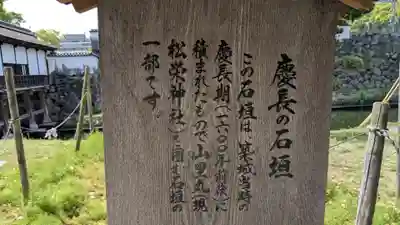 慶長の石垣
この石垣は、築城当時の
慶長期(一六〇〇年前後)に
積まれたもので山里丸(現
松栄神社)を囲む石垣の
一部です。